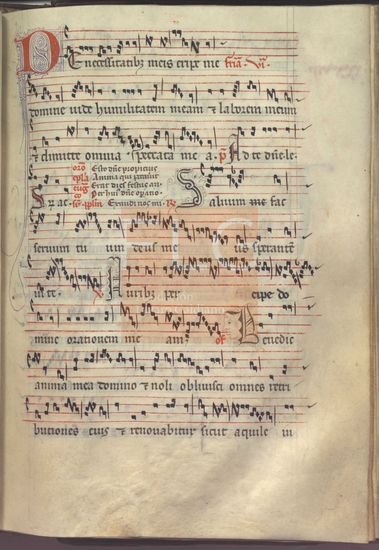 De necessitatibꝫ meis eripe me
domine uide humilitatem meam ⁊ laborem meum
⁊ dimitte omnia peccata me a. p̄ Ad te dn̄e le
Esto dn̄e propicius
Anima que
Erat dies festus
Per huius
Exaudi nos
Saluum me fac
seruum tu um deus me us sperantē
in te. Auribꝫ per cipe do
mine orationem me am. of Benedic
anima mea domino ⁊ noli obliuisci omnes retri
butiones eius ⁊ renouabitur sicut aquile iu